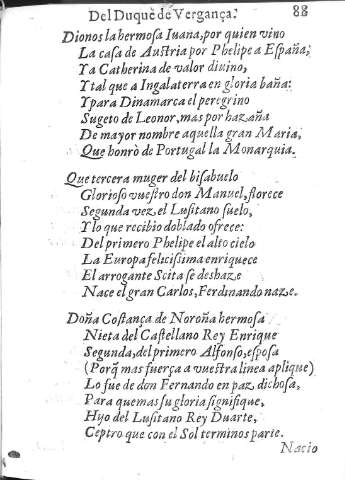 Del Duque de Vergança. 88
Dionos la hermoſa Iuana, por quien vino
La caſa de Auſtria por Phelipe a Eſpaña;
Y a Catherina de valor diuino,
Y tal que a Ingalaterra en gloria baña:
Y para Dinamarca el peregrino
Sugeto de Leonor, mas por hazaña
De mayor nombre aquella gran Maria,
Que honrò de Portugal la Monarquia.
Que tercera muger del biſabuelo
Glorioſo vueſtro don Manuel, florece
Segunda vez, el Luſitano ſuelo,
Y lo que recibio doblado ofrece:
Del primero Phelipe el alto cielo
La Europa feliciſſima enriquece
El arrogante Scita ſe deshaze
Nace el gran Carlos, Ferdinando naze.
Doña Coſtança de Noroña hermoſa
Nieta del Caſtellano Rey Enrique
Segunda, del primero Alfonſo, eſpoſa
(Porq̃ mas fuerça a vueſtra linea aplique)
Lo fue de don Fernando en paz dichoſa,
Para que mas ſu gloria ſignifique,
Hijo del Luſitano Rey Duarte,
Ceptro que con el Sol terminos parte.
Nacio